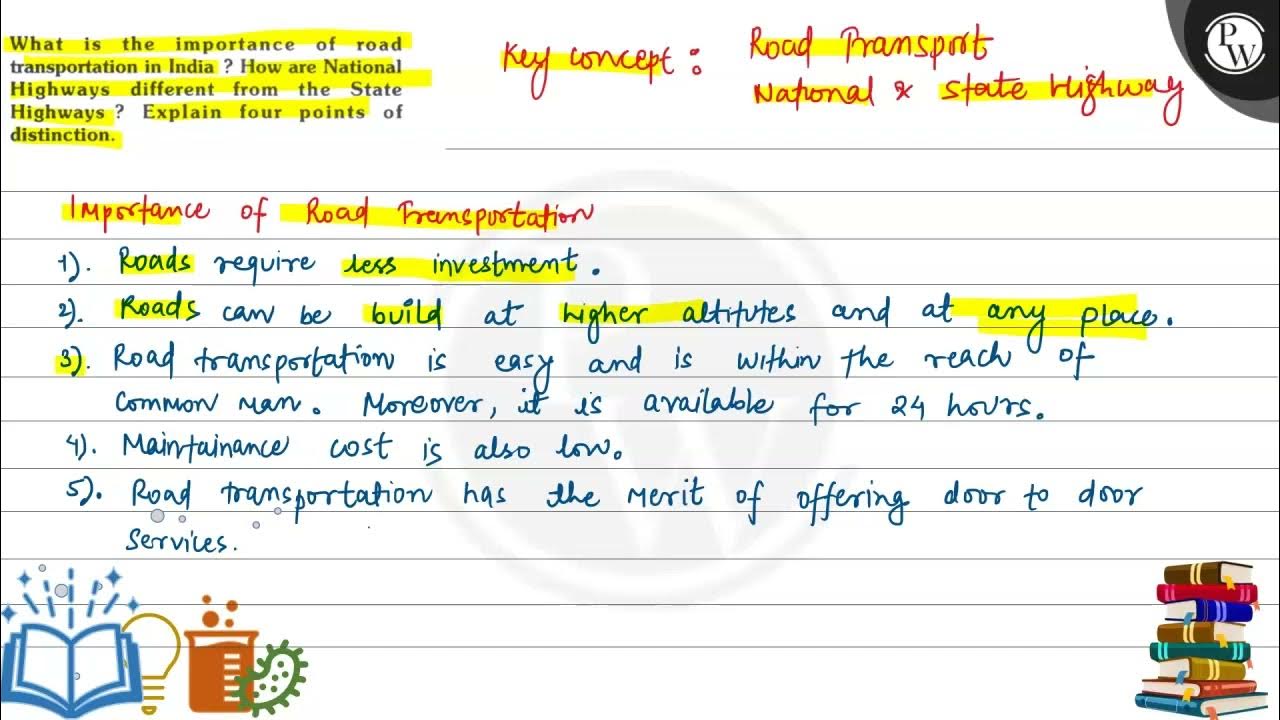 What is the importance of road
transportation in India ? How are National
Highways different from the State
Highways ? Explain four points of
distinction.
Key concept : Road Transport
National & State Highway
PW
Importance of Road Transportation
1). Roads require less investment.
2). Roads can be build at higher altitutes and at any place.
3). Road transportation is easy and is within the reach of
common man. Moreover, it is available for 24 hours.
4). Maintainance cost is also low.
5). Road transportation has the merit of offering door to door
services.